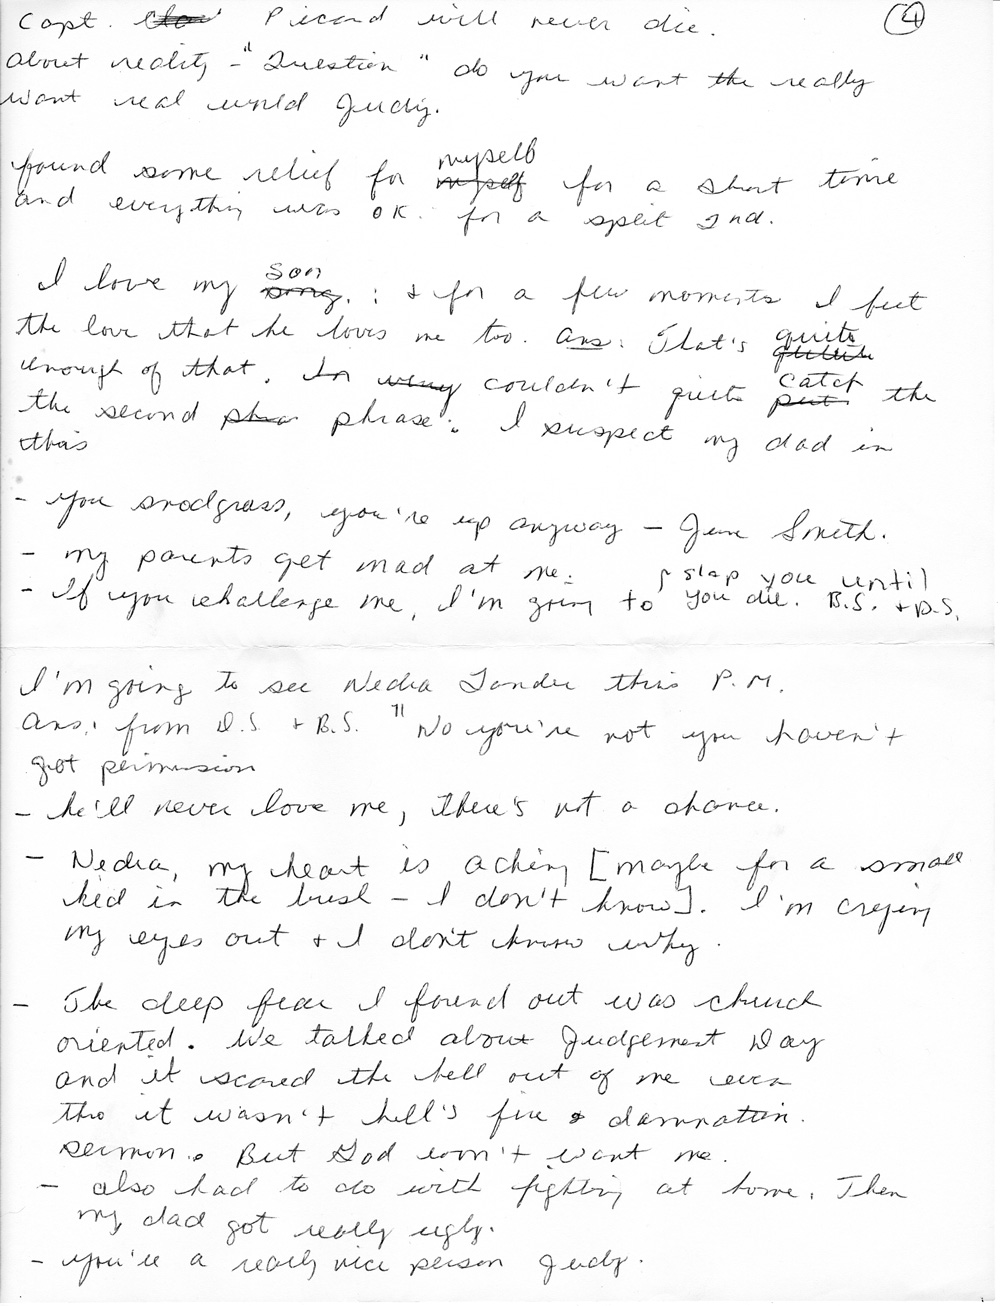 Capt. Picard will never die.
④
about reality - "Question" do you want the really
want real world Judy.
found some relief for myself myself for a short time
and everything was OK. for a split 2nd.
I love my son song. : & for a few moments I feel
the love that he loves me too. Ans: That's quite
enough of that. In couldn't quite catch put the
the second phrase. I suspect my dad in
this
- you snodgrass, you're up anyway - June Smith.
- my parents get mad at me:
- If you challenge me, I'm going to slap you until
you die. B.S. + D.S.
I'm going to see Nedra this P.M.
Ans: from D.S. + B.S. "No you're not you haven't
got permission
- he'll never love me, there's not a chance.
- Nedra, my heart is aching [maybe for a small
kid in the bush - I don't know]. I'm crying
my eyes out + I don't know why.
- The deep fear I found out was church
oriented. We talked about Judgement Day
and it scared the hell out of me even
tho it wasn't hell's fire & damnation.
sermon. But God won't want me.
- also had to do with fighting at home. Then
my dad got really ugly.
- you're a really nice person Judy.